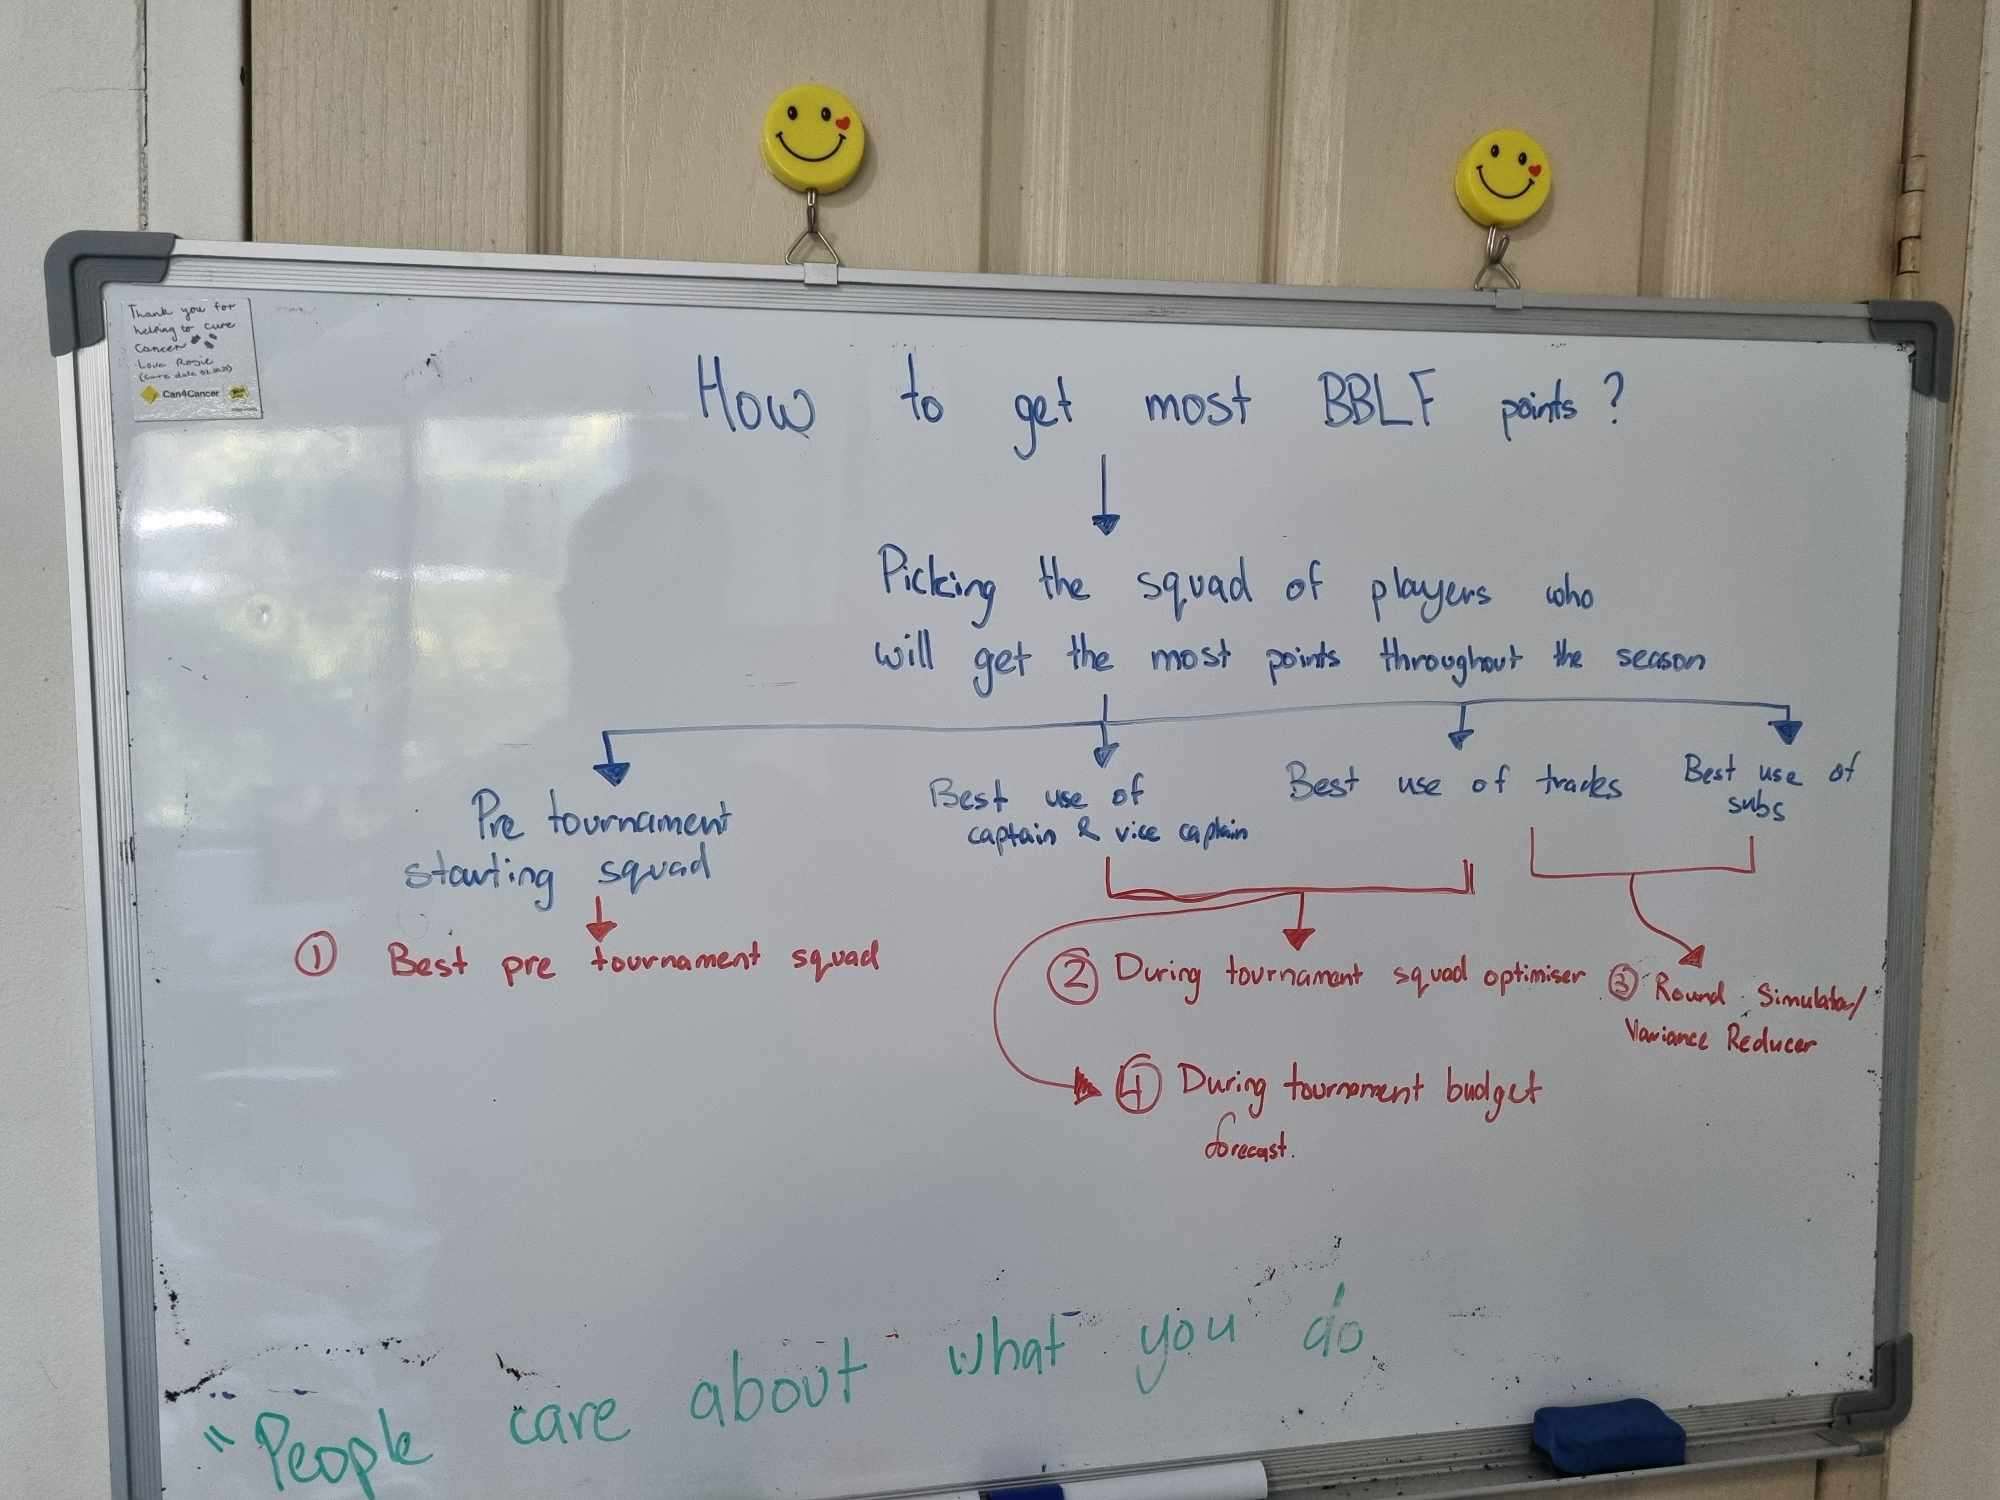 Thank you for
helping to cure
Cancer
Love Rosie
Can4Cancer
How to get most BBLF points?
Picking the squad of players who
will get the most points throughout the season
Pre tournament
starting squad
Best use of
captain & vice captain
Best use of trades
Best use of
subs
1 Best pre tournament squad
2 During tournament squad optimiser
3 Round Simulator/
Variance Reducer
4 During tournament budget
forecast.
"People care about what you do